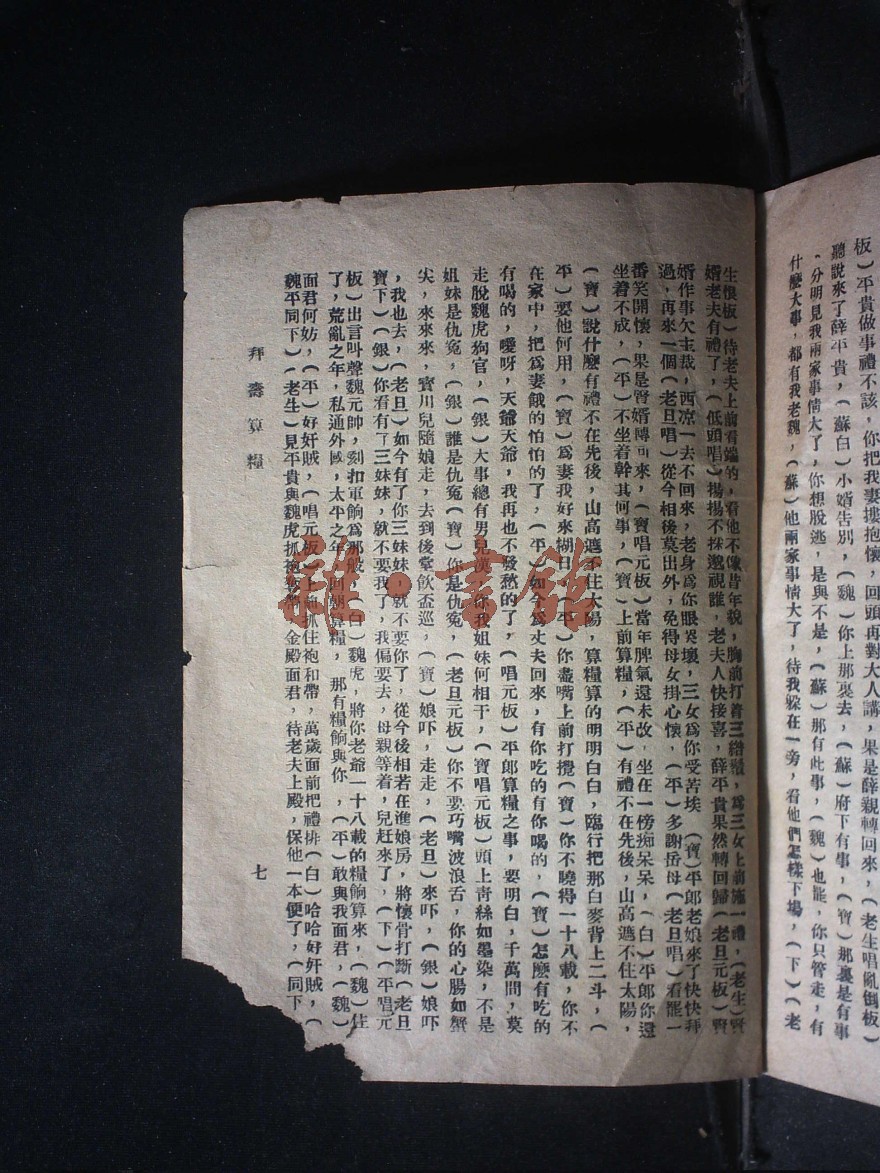 板）平貴做事禮不該，你把我妻摟抱懷，回頭再對大人講，果是薛親轉回來，（老生唱亂倒板）
聽說來了薛平貴，（蘇白）小婿告別，（魏）你上那裏去，（蘇）府下有事，（寶）那裏是有事
，分明見我兩家事情大了，你想脫逃，是與不是，（蘇）那有此事，（魏）也罷，你只管走，有
什麼大事，都有我老魏，（蘇）他兩家事情大了，待我躱在一旁，看他們怎樣下場，（下）（老
生恨板）待老夫上前看端的，看他不像昔年貌，胸前打着三綹鬚，爲三女上前施一禮，（老生）賢
婿老夫有禮了，（低頭唱）揚揚不採邀視誰，老夫人快接喜，薛平貴果然轉回歸（老旦元板）賢
婿作事欠主裁，西凉一去不回來，老身爲你眼哭壞，三女爲你受苦埃（寶）平郎老娘來了快快拜
過，再來一個（老旦唱）從今相後莫出外，免得母女掛心懷，（平）多謝岳母（老旦唱）看罷一
番笑開懷，果是賢婿轉回來，（寶唱元板）當年脾氣還未改，坐在一傍痴呆呆，（白）平郎你還
坐着不成，（平）不坐着幹其何事，（寶）上前算糧，（平）有禮不在先後，山高遮不住太陽，
（寶）說什麼有禮不在先後，山高遮不住太陽，算糧算的明明白白，臨行把那白麥背上二斗，（
平）要他何用，（寶）爲妻我好來糊口，（平）你盡嘴上前打攪（寶）你不曉得一十八載，你不
在家中，把爲妻餓的怕怕的了，（平）如今爲丈夫回來，有你吃的有你喝的，（寶）怎麼有吃的
有喝的，噯呀，天爺天爺，我再也不發愁的了，（唱元板）平郎算糧之事，要明白，千萬間，莫
走脫魏虎狗官，（銀）大事總有男兒漢，你我姐妹何相干，（寶唱元板）頭上靑絲如墨染，不是
姐妹是仇寃，（銀）誰是仇寃（寶）你是仇寃，（老旦元板）你不要巧嘴波浪舌，你的心腸如蟹
尖，來來來，寶川兒隨娘走，去到後堂飲盃巡，（寶）娘吓，走走，（老旦）來吓，（銀）娘吓
，我也去，（老旦）如今有了你三妹妹，就不要你了，從今後相若在進娘房，將懷骨打斷（老旦
寶下）（銀）你看有了三妹妹，就不要我了，我偏要去，母親等着，兒赶來了，（下）（平唱元
板）出言叫聲魏元帥，刻扣軍餉爲那般（白）魏虎，將你老爺一十八載的糧餉算來，（魏）住
了，荒亂之年，私通外國，太平之年，回朝算糧，那有糧餉與你，（平）敢與我面君，（魏）
面君何妨，（平）好奸賊，（唱元板）上前抓住袍和帶，萬歲面前把禮排（白）哈哈好奸賊，（
魏平同下）（老生）見平貴與魏虎抓袍，金殿面君，待老夫上殿，保他一本便了，（同下
拜壽算糧
七
雜·書館